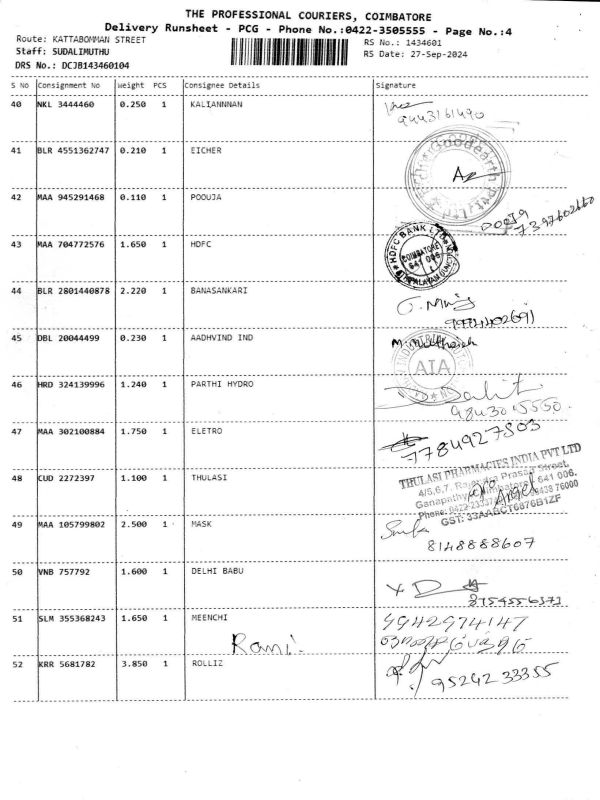 THE PROFESSIONAL COURIERS, COIMBATORE
Delivery Runsheet - PCG - Phone No.:0422-3505555 - Page No.:4
Route: KATTABOMMAN STREET
RS No.: 1434601
Staff: SUDALIMUTHU
RS Date: 27-Sep-2024
DRS No.: DCJB143460104
S No Consignment No Weight PCS Consignee Details Signature
40 NKL 3444460 0.250 1 KALIANNNAN
9443161490
41 BLR 4551362747 0.210 1 EICHER
42 MAA 945291468 0.110 1 POOUJA
Pooja
7397602660
43 MAA 704772576 1.650 1 HDFC
HDFC BANK LTD
COIMBATORE
641 006
44 BLR 2801440878 2.220 1 BANASANKARI
45 DBL 20044499 0.230 1 AADHVIND IND
ATA
46 HRD 324139996 1.240 1 PARTHI HYDRO
9843015550
47 MAA 302100884 1.750 1 ELETRO
7784927803
48 CUD 2272397 1.100 1 THULASI
THULASI PHARMACIES INDIA PVT LTD
4/5,6,7, Rajendra Prasad Street,
Ganapathy, Coimbatore - 641 006.
GST: 33AABCT6876B1ZF
49 MAA 105799802 2.500 1 MASK
8148888607
50 VNB 757792 1.600 1 DELHI BABU
8754556373
51 SLM 355368243 1.650 1 MEENCHI
9942974147
Rani
52 KRR 5681782 3.850 1 ROLLIZ
95242 33355